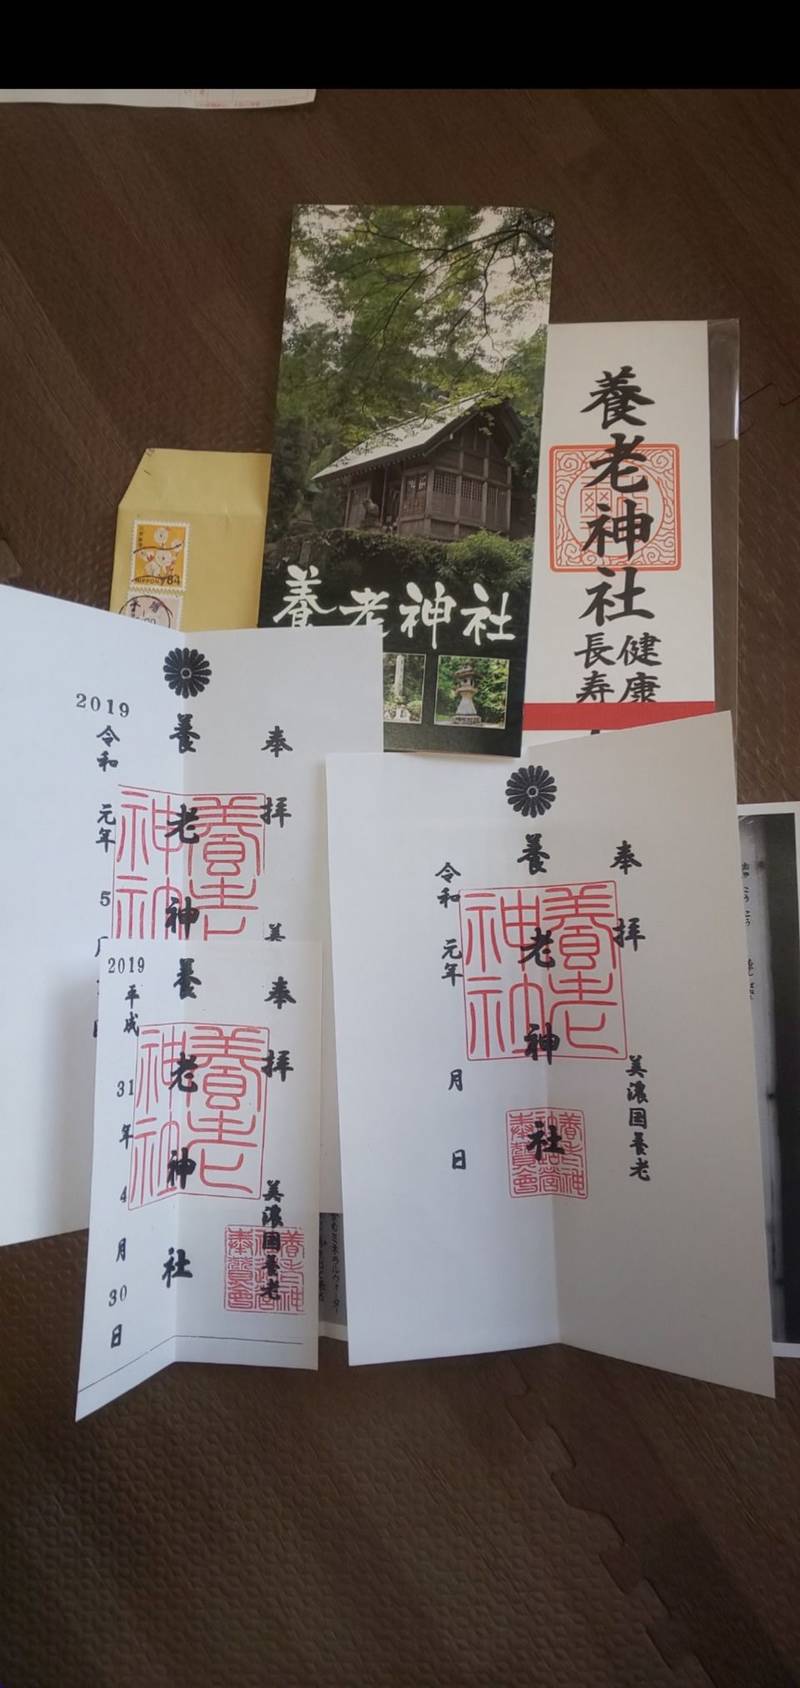 養老神社
養老神社
健康
長寿
NIPPON 84
奉拝
養老神
2019
令和元年
5
美
奉拝
美濃国養老
養老神社
2019
平成31年4月30日
奉拝
美濃国養老
養老神社
令和元年
月
日
養老神社
養老神社
養老神社